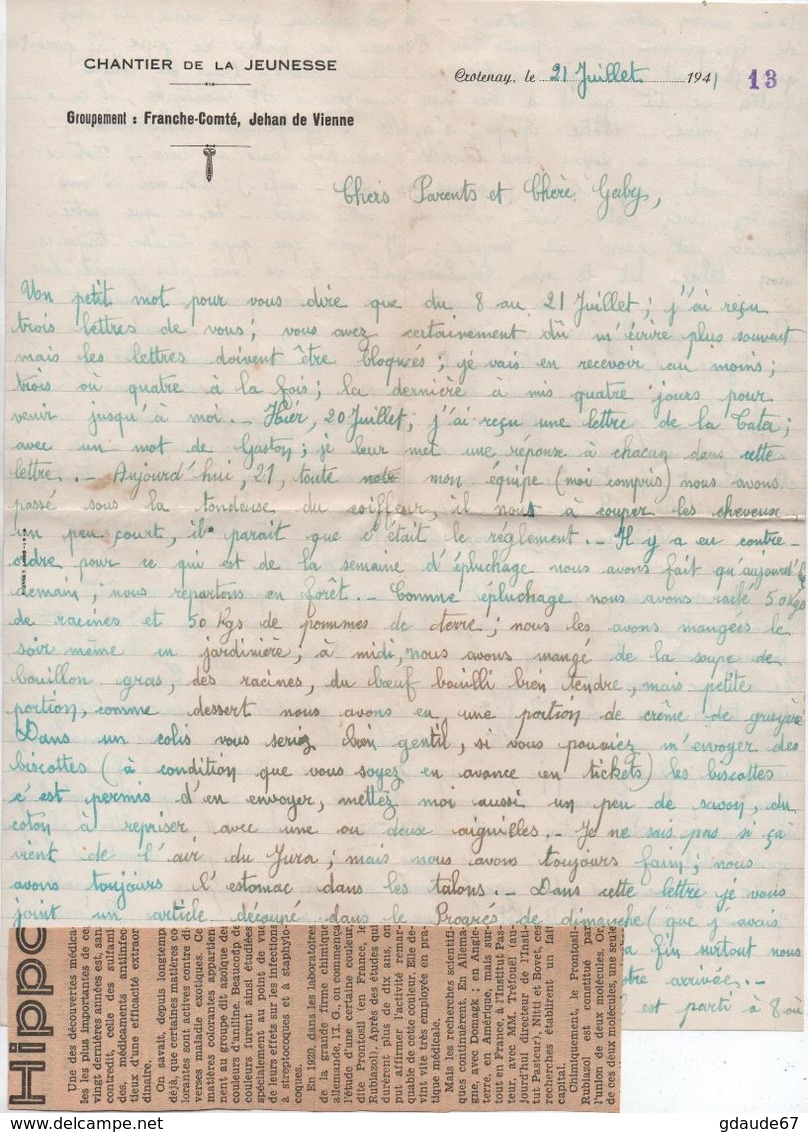 CHANTIER DE LA JEUNESSE
Groupement : Franche-Comté, Jehan de Vienne
Crotenay, le 21 Juillet 1941
13
Chers Parents et Chère Gaby,
Un petit mot pour vous dire que du 8 au 21 Juillet ; j'ai reçu
trois lettres de vous ; vous avez certainement dû m'écrire plus souvent
mais les lettres doivent être bloquées ; je vais en recevoir au moins ;
trois où quatre à la fois ; la dernière à mis quatre jours pour
venir jusqu'à moi. - Hier, 20 Juillet, j'ai reçu une lettre de la Tata ;
avec un mot de Gaston ; je leur met une réponse à chacun dans cette
lettre. - Aujourd'hui, 21, toute mon équipe (moi compris) nous avons
passé sous la tondeuse du coiffeur, il nous à couper les cheveux
un peu court, il parait que c'était le réglement. - Il y a eu contre-
ordre pour ce qui est de la semaine d'épluchage nous avons fait qu'aujourd'h
demain, nous repartons en forêt. - Comme épluchage nous avons 50 Kgs
de racines et 50 Kgs de pommes de terre ; nous les avons mangées le
soir même en jardinière ; à midi, nous avons mangé de la soupe de
bouillon gras, des racines, du bœuf bouilli bien tendre, mais petite
portion, comme dessert nous avons eu une portion de crème de gruyère
Dans un colis vous seriez bien gentil, si vous pouviez m'envoyer des
biscottes (à condition que vous soyez en avance en tickets) les biscottes
c'est permis d'en envoyer, mettez moi aussi un peu de savon, du
coton à repriser avec une ou deux aiguilles. - Je ne sais pas si çà
vient de l'air du Jura ; mais nous avons toujours faim ; nous
avons toujours l'estomac dans les talons. - Dans cette lettre je vous
joint un article découpé dans le Progrés de dimanche (que j'avais
la fin surtout nous
arrivée. -
est parti à 8 où
Hippo
Une des découvertes médica-
les les plus importantes de ces
vingt dernières années est, sans
contredit, celle des sulfami-
des, médicaments antiinfec-
tieux d'une efficacité extraor-
dinaire.
On savait, depuis longtemps
déjà, que certaines matières co-
lorantes sont actives contre di-
verses maladie exotiques. Ces
matières colorantes appartien-
nent au groupe dit azoïque des
couleurs d'aniline. Beaucoup de
couleurs furent ainsi étudiées
spécialement au point de vue
de leurs effets sur les infections
à streptocoques et à staphylo-
coques.
En 1920, dans les laboratoires
de la grande firme chimique
allemande I. G., on commença
l'étude d'une certaine couleur,
dite Prontosil (en France, le
Rubiazol). Après des études qui
durèrent plus de dix ans, on
put affirmer l'activité remar-
quable de cette couleur. Elle de-
vint vite très employée en pra-
tique médicale.
Mais les recherches scientifi-
ques continuèrent. En Allema-
gne, avec Domagk ; en Angle-
terre, en Amérique, mais sur-
tout en France, à l'Institut Pas-
teur, avec MM. Tréfouël (au-
jourd'hui directeur de l'Insti-
tut Pasteur), Nitti et Bovet, ces
recherches établirent un fait
capital.
Chimiquement, le Prontosil-
Rubiazol est constitué par
l'union de deux molécules. Or,
de ces deux molécules, une seule
gdaude67